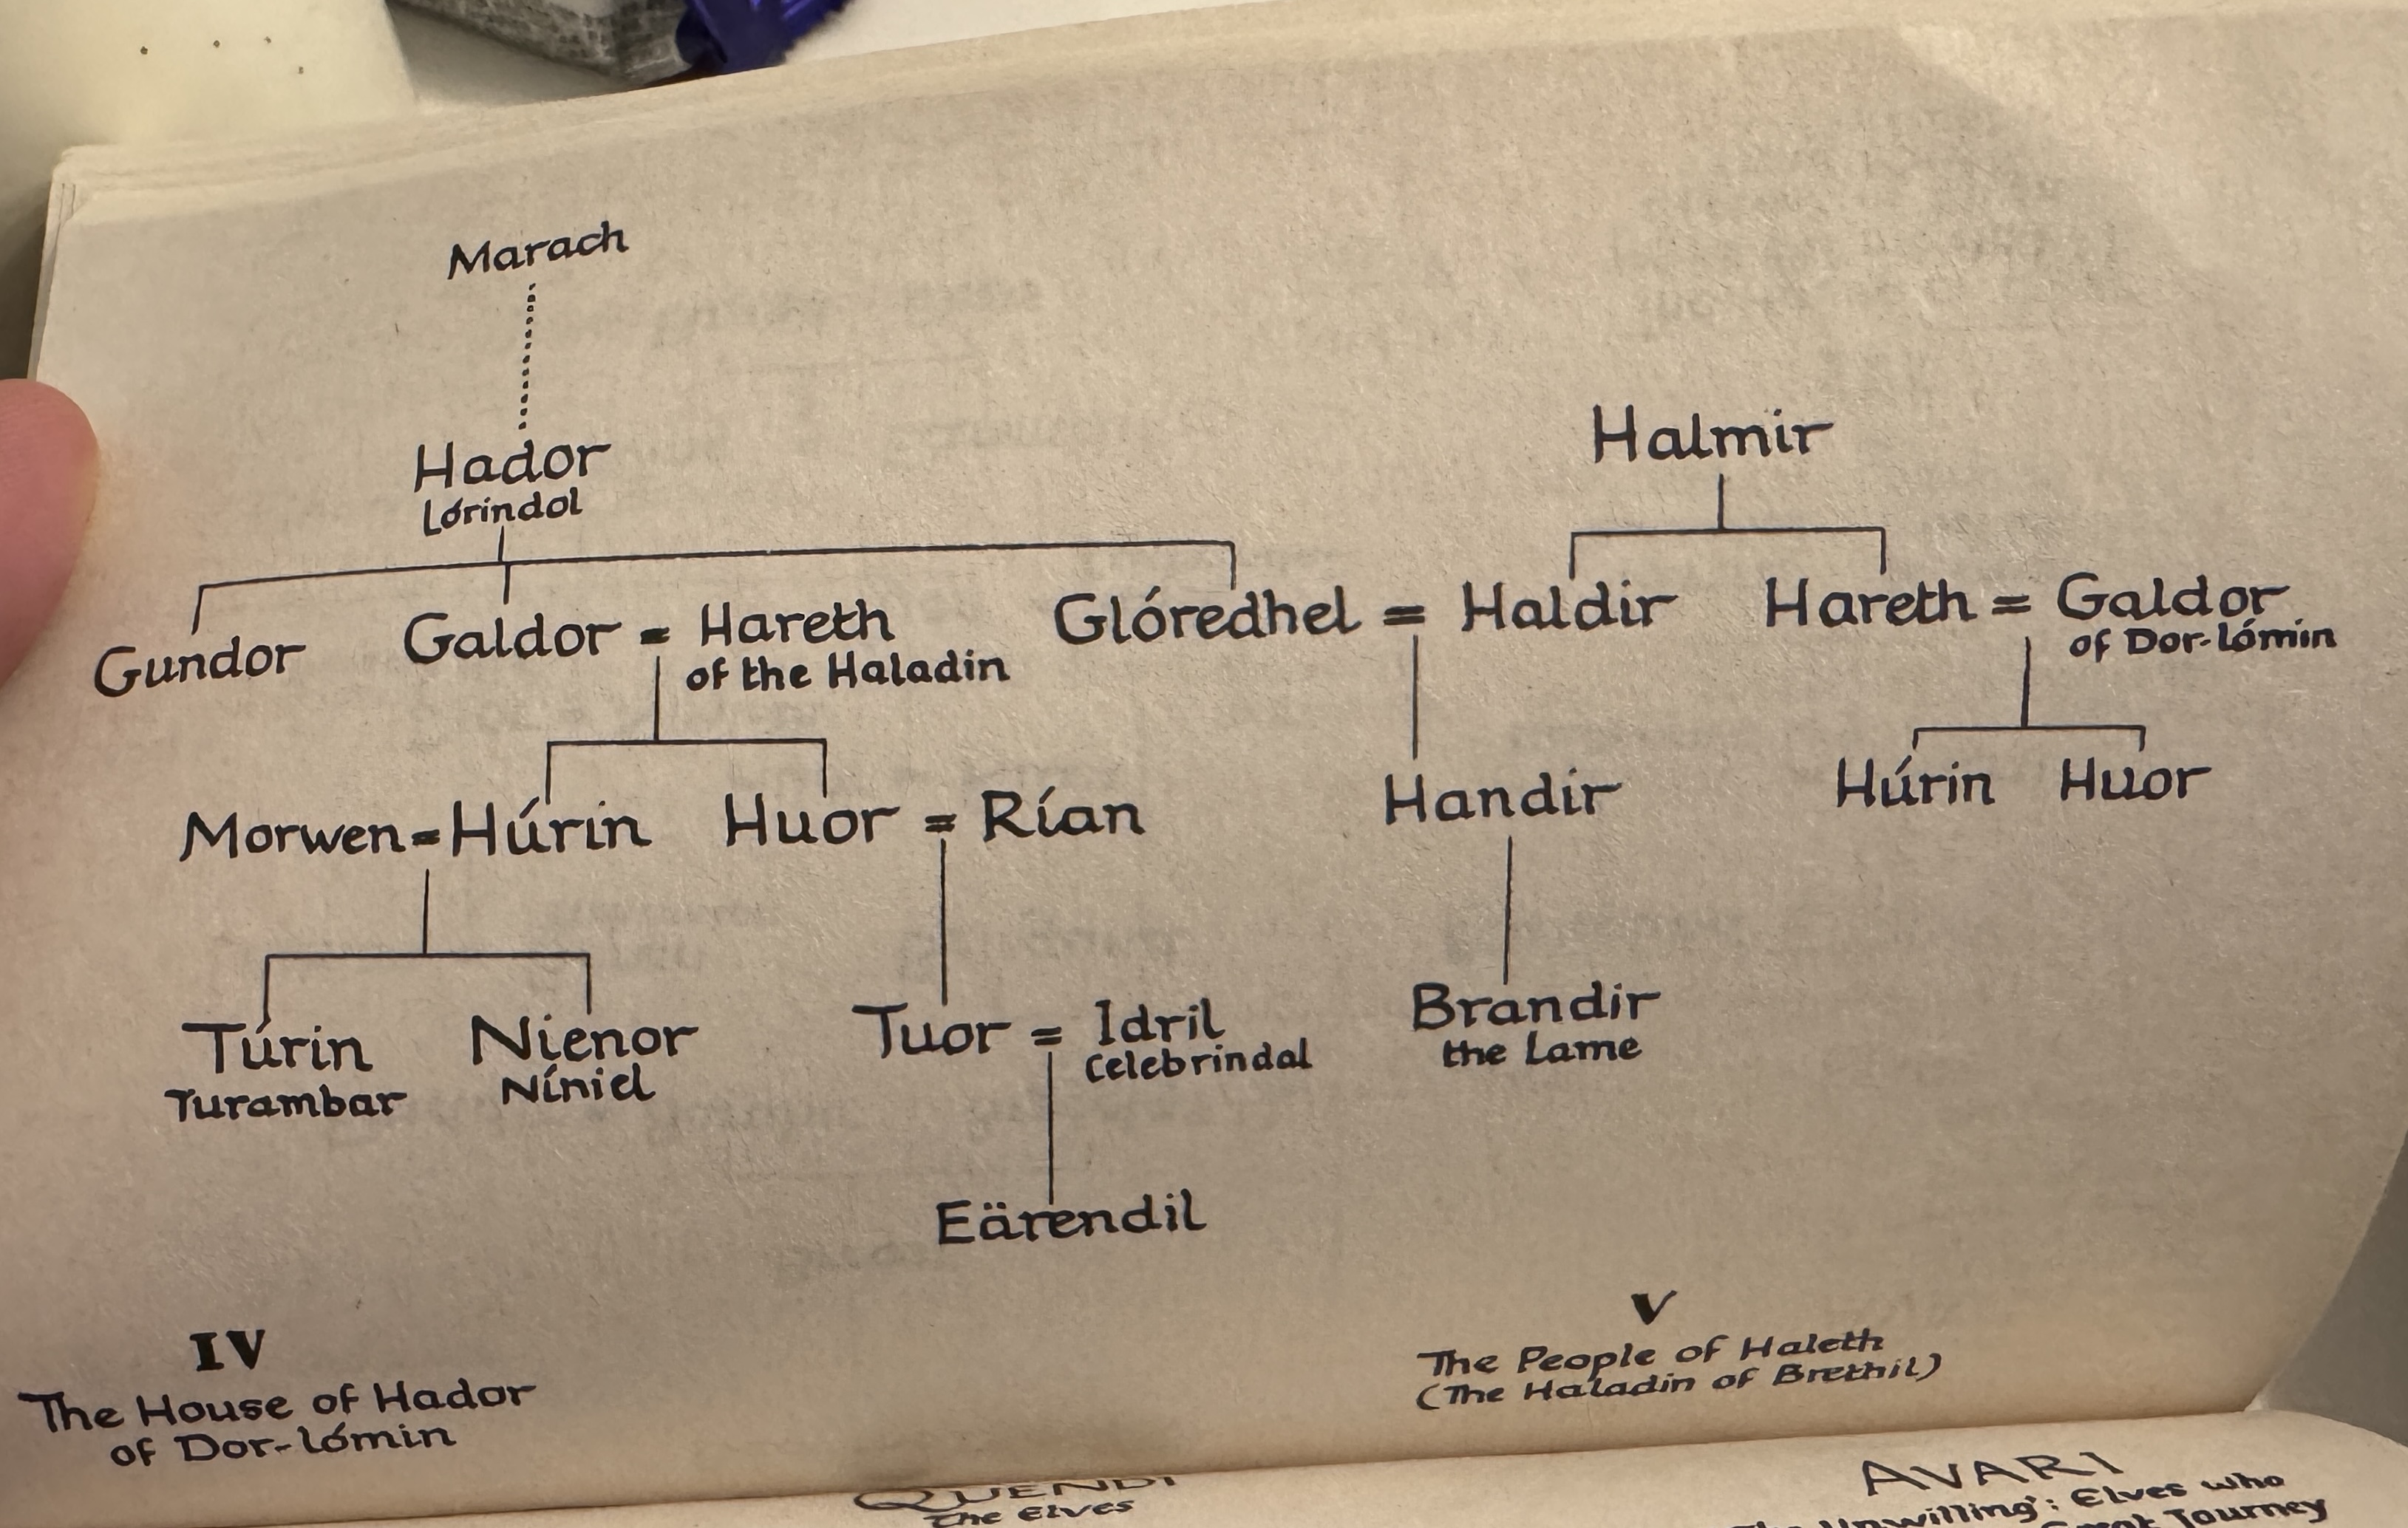 Marach
Hador
Lórindol
Halmir
Gundor
Galdor = Hareth
of the Haladin
Glóredhel = Haldir
Hareth = Galdor
of Dor-lómin
Morwen = Húrin
Huor = Rían
Handir
Húrin Huor
Túrin
Turambar
Nienor
Níniel
Tuor = Idril
Celebrindal
Brandir
the Lame
Eärendil
IV
The House of Hador
of Dor-lómin
V
The People of Haleth
(The Haladin of Brethil)
QUENDI
The Elves
AVARI
Unwilling': Elves who
Journey